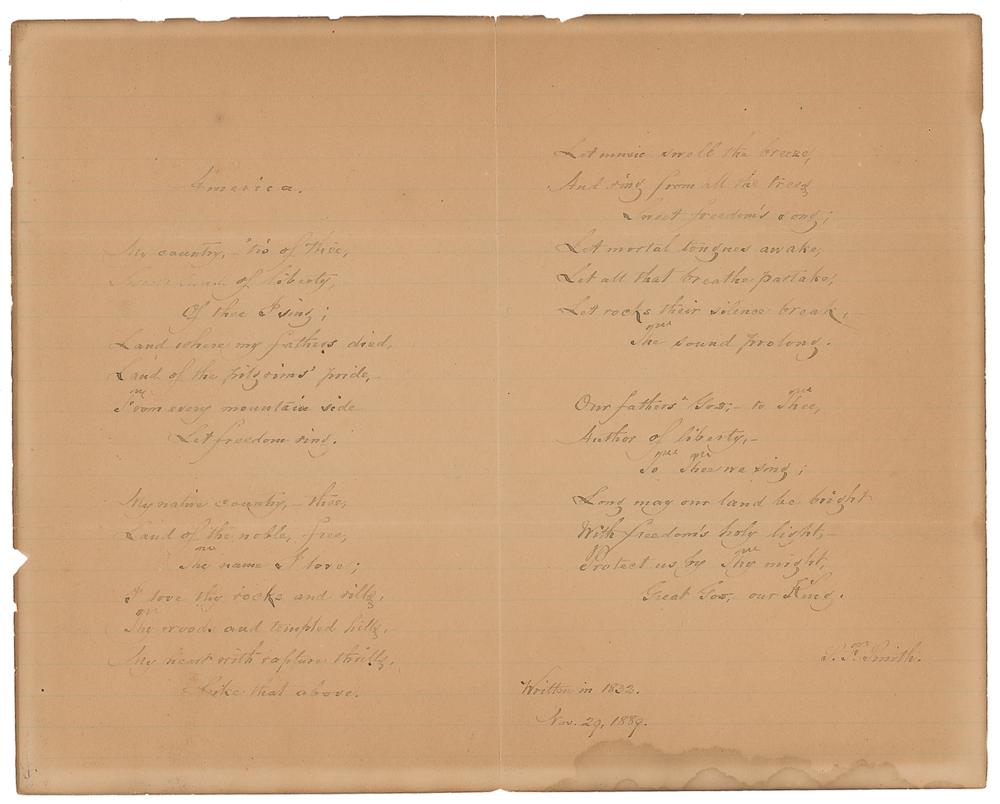 America.
My country,– 'tis of thee,
Sweet land of liberty,
Of thee I sing;
Land where my fathers died,
Land of the pilgrims' pride,–
From every mountain side
Let freedom ring.
My native country,– thee,
Land of the noble, free,
Thy name I love;
I love thy rocks and rills,
Thy woods and templed hills,–
My heart with rapture thrills,
Like that above.
Let music swell the breeze,
And ring from all the trees
Sweet freedom's song;
Let mortal tongues awake,
Let all that breathe partake,
Let rocks their silence break,
The sound prolong.
Our fathers' God,– to Thee,
Author of liberty,–
To Thee we sing;
Long may our land be bright
With freedom's holy light,–
Protect us by Thy might,
Great God, our King.
S. F. Smith.
Written in 1832.
Nov. 29, 1889.